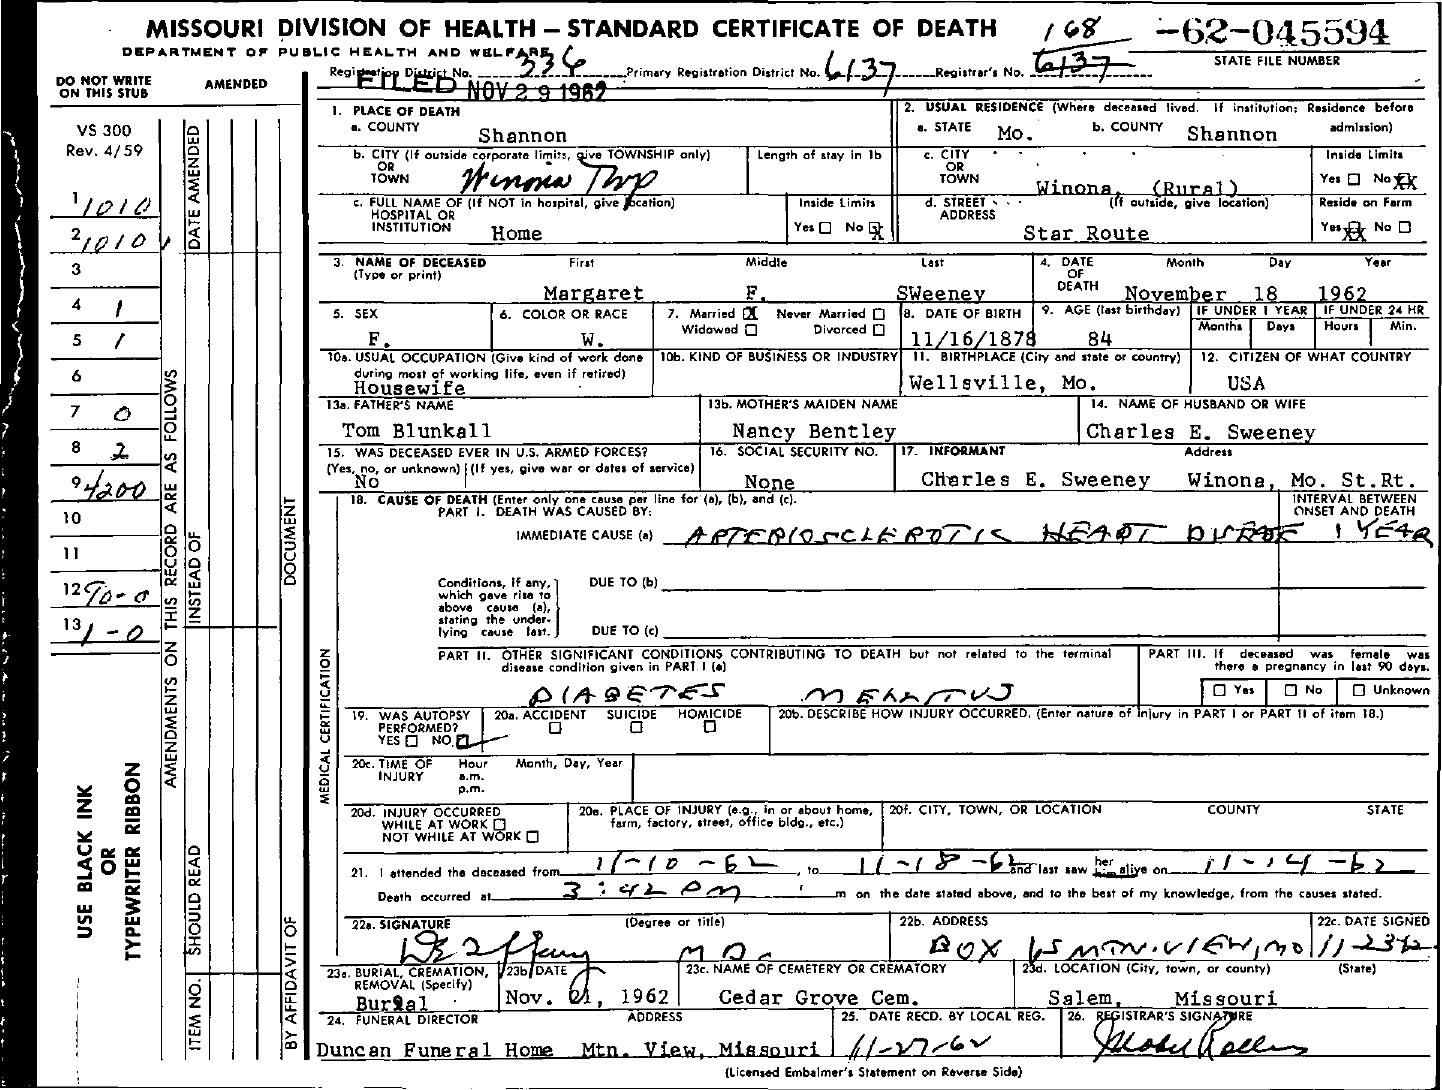 MISSOURI DIVISION OF HEALTH – STANDARD CERTIFICATE OF DEATH
168
-62-045594
DEPARTMENT OF PUBLIC HEALTH AND WELFARE
STATE FILE NUMBER
Registration District No. 336 Primary Registration District No. 6137 Registrar's No. 6137
FILED NOV 29 1962
DO NOT WRITE ON THIS STUB
AMENDED
VS 300
Rev. 4/59
1 1010
2 1010
3
4 1
5 1
6
7 0
8 2
9 4200
10
11
12 90-0
13 1-0
USE BLACK INK
OR
TYPEWRITER RIBBON
AMENDMENTS ON THIS RECORD ARE AS FOLLOWS
DATE AMENDED
INSTEAD OF
SHOULD READ
ITEM NO.
DOCUMENT
BY AFFIDAVIT OF
MEDICAL CERTIFICATION
1. PLACE OF DEATH
a. COUNTY Shannon
b. CITY (If outside corporate limits, give TOWNSHIP only)
OR
TOWN Winona Twp
Length of stay in 1b
c. FULL NAME OF (If NOT in hospital, give location)
HOSPITAL OR
INSTITUTION Home
Inside Limits
Yes ☐ No ☒
2. USUAL RESIDENCE (Where deceased lived. If institution: Residence before admission)
a. STATE Mo. b. COUNTY Shannon
c. CITY
OR
TOWN Winona, (Rural)
Inside Limits
Yes ☐ No ☒
d. STREET (If outside, give location)
ADDRESS Star Route
Reside on Farm
Yes ☒ No ☐
3. NAME OF DECEASED First Middle Last
(Type or print)
Margaret F. SWeeney
4. DATE OF DEATH Month Day Year
November 18 1962
5. SEX
F.
6. COLOR OR RACE
W.
7. Married ☒ Never Married ☐
Widowed ☐ Divorced ☐
8. DATE OF BIRTH
11/16/1878
9. AGE (last birthday)
84
IF UNDER 1 YEAR
Months Days
IF UNDER 24 HR
Hours Min.
10a. USUAL OCCUPATION (Give kind of work done during most of working life, even if retired)
Housewife
10b. KIND OF BUSINESS OR INDUSTRY
11. BIRTHPLACE (City and state or country)
Wellsville, Mo.
12. CITIZEN OF WHAT COUNTRY
USA
13a. FATHER'S NAME
Tom Blunkall
13b. MOTHER'S MAIDEN NAME
Nancy Bentley
14. NAME OF HUSBAND OR WIFE
Charles E. Sweeney
15. WAS DECEASED EVER IN U.S. ARMED FORCES?
(Yes, no, or unknown) (If yes, give war or dates of service)
No
16. SOCIAL SECURITY NO.
None
17. INFORMANT Address
Charles E. Sweeney Winona, Mo. St.Rt.
18. CAUSE OF DEATH (Enter only one cause per line for (a), (b), and (c).
PART I. DEATH WAS CAUSED BY:
INTERVAL BETWEEN ONSET AND DEATH
IMMEDIATE CAUSE (a) ARTERIOSCLEROTIC HEART DISEASE 1 YEAR
Conditions, if any, which gave rise to above cause (a), stating the underlying cause last.
DUE TO (b)
DUE TO (c)
PART II. OTHER SIGNIFICANT CONDITIONS CONTRIBUTING TO DEATH but not related to the terminal disease condition given in PART I (a)
DIABETES MELLITUS
PART III. If deceased was female was there a pregnancy in last 90 days.
☐ Yes ☐ No ☐ Unknown
19. WAS AUTOPSY PERFORMED?
YES ☐ NO ☑
20a. ACCIDENT SUICIDE HOMICIDE
☐ ☐ ☐
20b. DESCRIBE HOW INJURY OCCURRED. (Enter nature of injury in PART I or PART II of item 18.)
20c. TIME OF INJURY Hour Month, Day, Year
a.m.
p.m.
20d. INJURY OCCURRED
WHILE AT WORK ☐
NOT WHILE AT WORK ☐
20e. PLACE OF INJURY (e.g., in or about home, farm, factory, street, office bldg., etc.)
20f. CITY, TOWN, OR LOCATION COUNTY STATE
21. I attended the deceased from 11-10-62, to 11-18-62 and last saw her him alive on 11-14-62
Death occurred at 3:42 PM m on the date stated above, and to the best of my knowledge, from the causes stated.
22a. SIGNATURE (Degree or title)
M D.
22b. ADDRESS
BOX MTN. VIEW, MO
22c. DATE SIGNED
23a. BURIAL, CREMATION, REMOVAL (Specify)
Burial
23b. DATE
Nov. 21, 1962
23c. NAME OF CEMETERY OR CREMATORY
Cedar Grove Cem.
23d. LOCATION (City, town, or county) (State)
Salem, Missouri
24. FUNERAL DIRECTOR ADDRESS
Duncan Funeral Home Mtn. View, Missouri
25. DATE RECD. BY LOCAL REG.
11-27-62
26. REGISTRAR'S SIGNATURE
(Licensed Embalmer's Statement on Reverse Side)